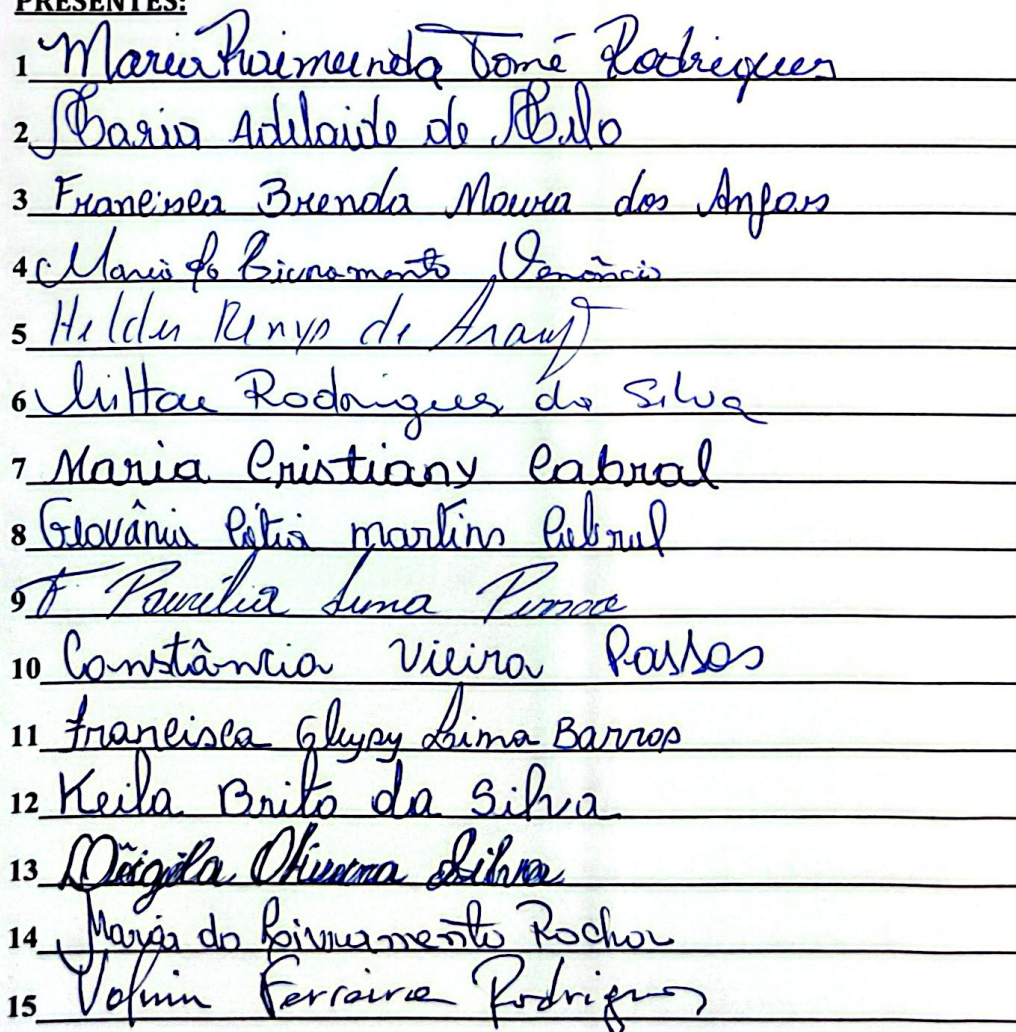 PRESENTES:
1 Maria Raimunda Tomé Rodrigues
2 Maria Adelaide de Melo
3 Francisca Brenda Moura dos Anjos
4 Maria do Livramento Venâncio
5 Helder Kenyo de Araujo
6 Rodrigues da Silva
7 Maria Cristiany Cabral
8 Geovânia Cátia martins Cabral
9 F Paurília Lima
10 Constância Vieira Passos
11 Francisca Gleysy Lima Barros
12 Keila Brito da Silva
13 Oliveira Silva
14 Maria do Livramento Rocha
15 Ferreira Rodrigues